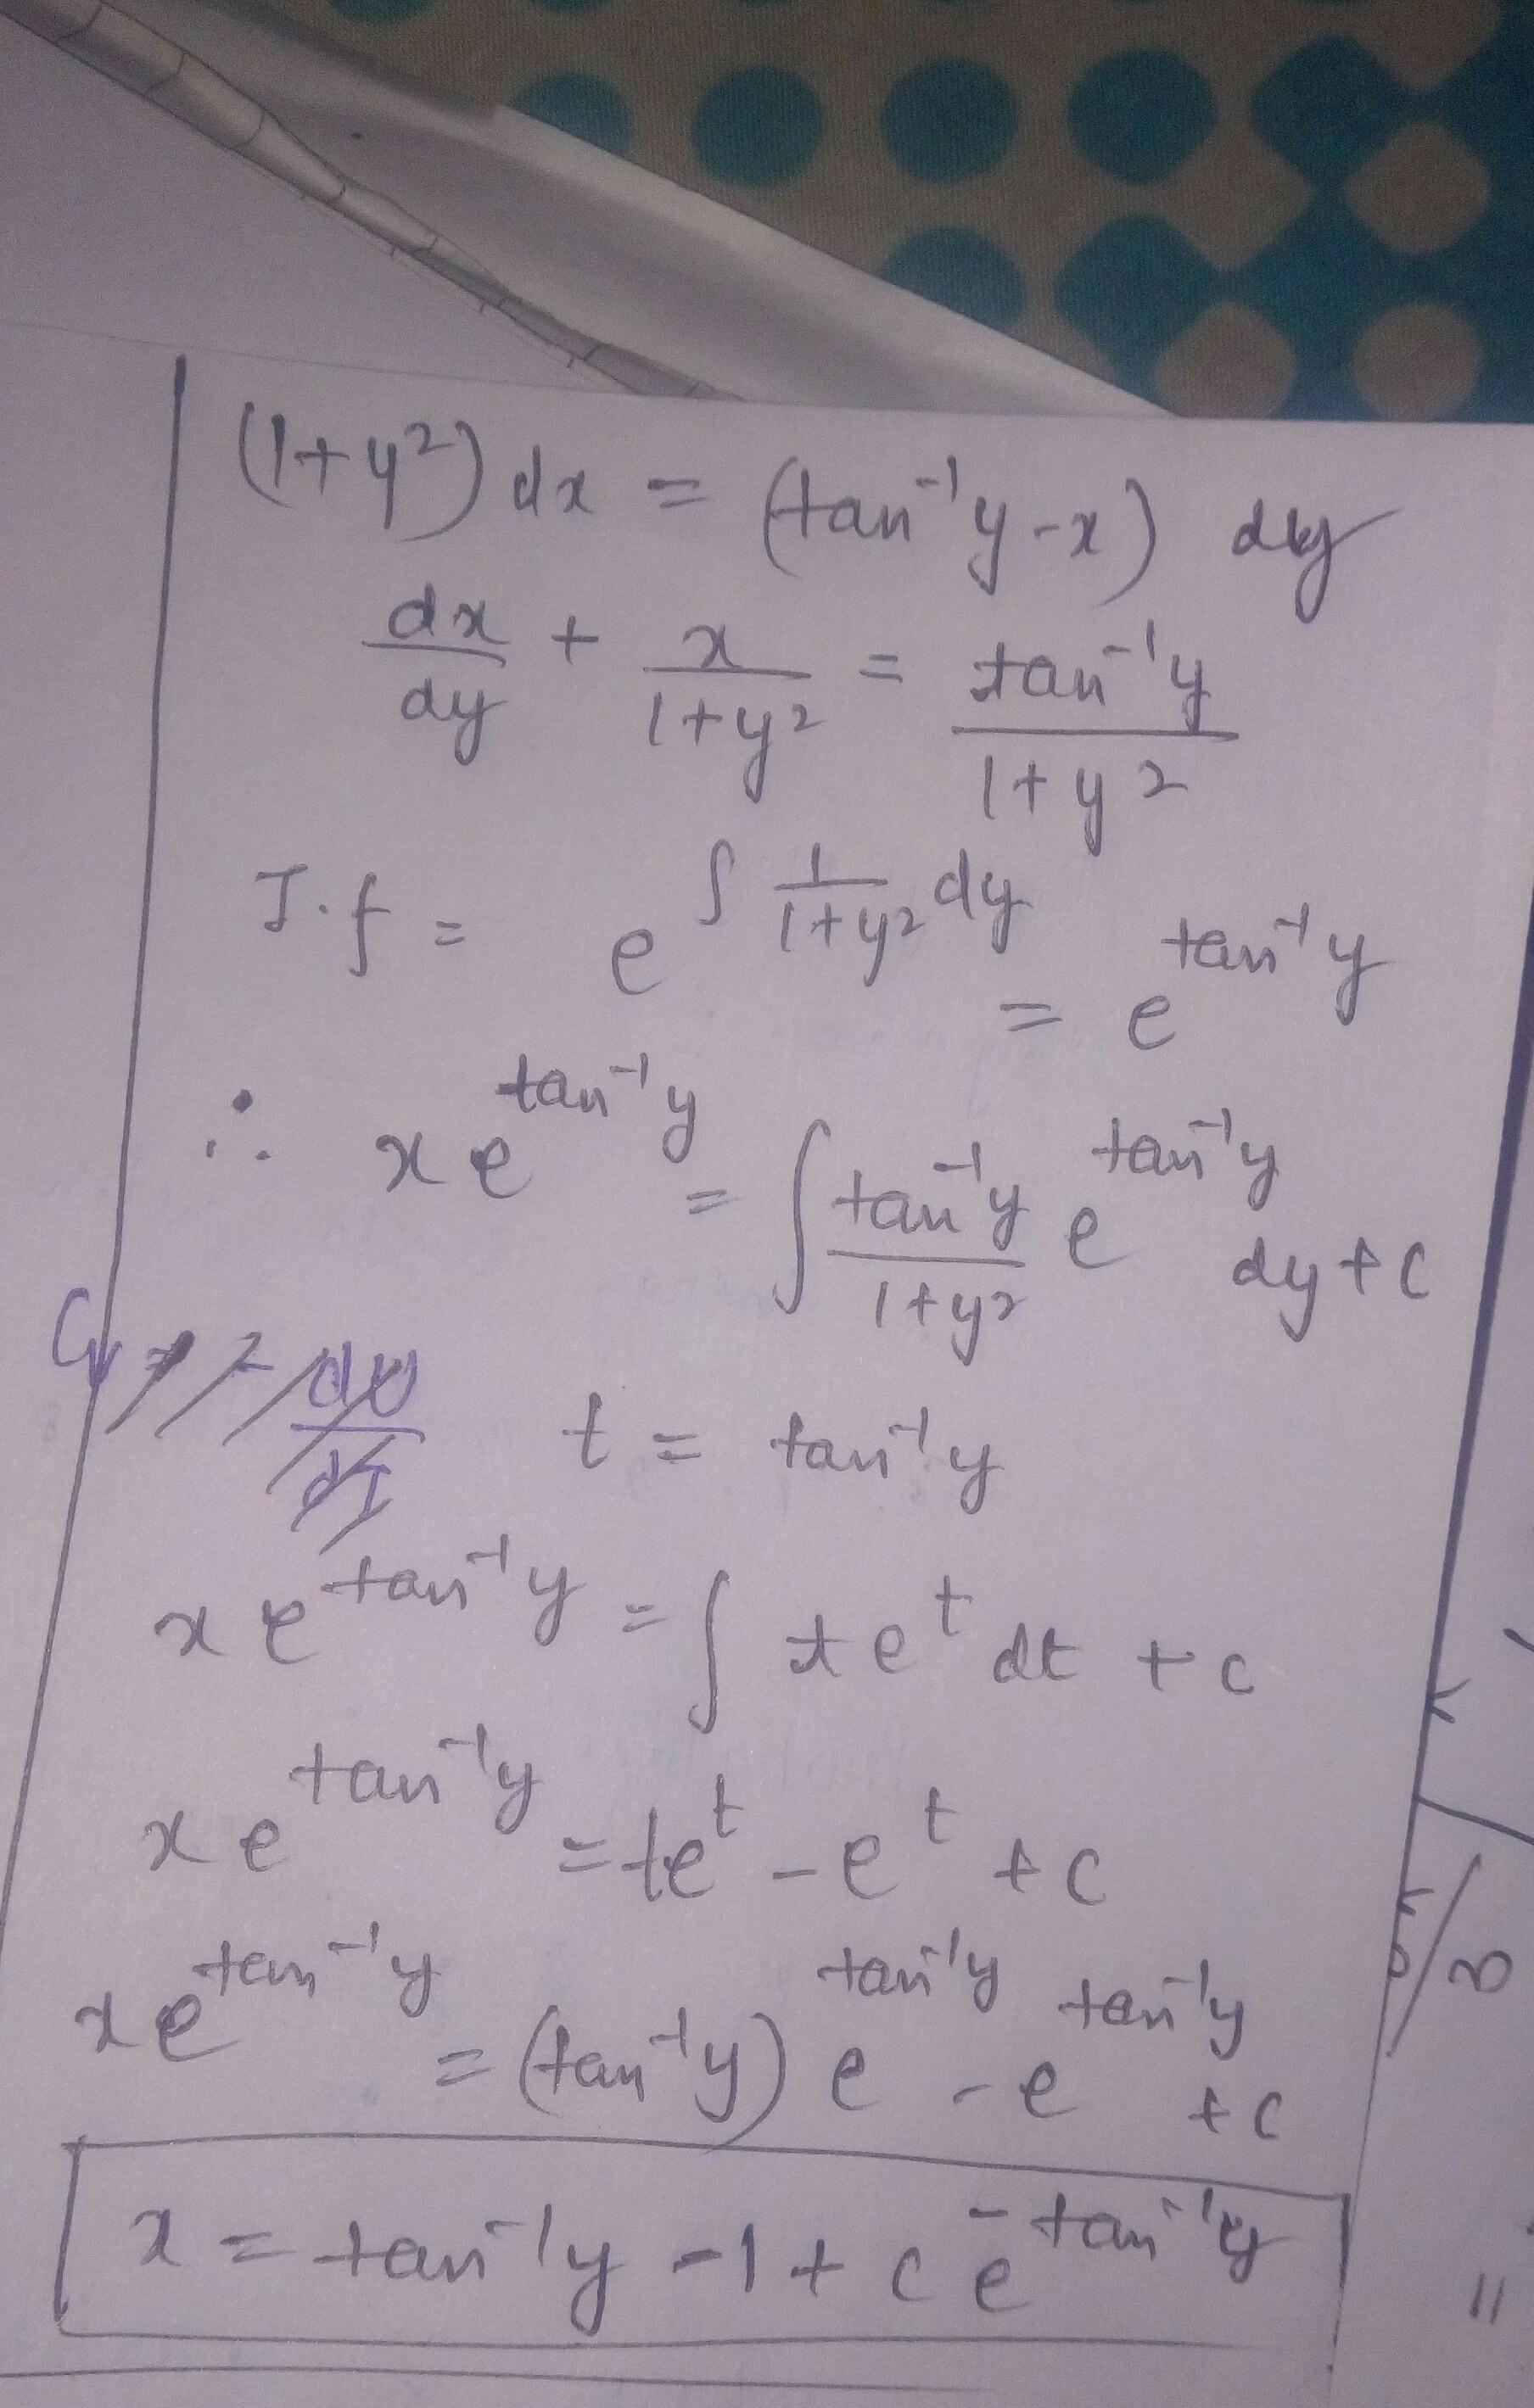 (1+y²) dx = (tan⁻¹y - x) dy
dx/dy + x/(1+y²) = tan⁻¹y/(1+y²)
I.f = e^(∫ 1/(1+y²) dy) = e^(tan⁻¹y)
∴ x e^(tan⁻¹y) = ∫ tan⁻¹y/(1+y²) e^(tan⁻¹y) dy + c
t = tan⁻¹y
x e^(tan⁻¹y) = ∫ t e^t dt + c
x e^(tan⁻¹y) = te^t - e^t + c
x e^(tan⁻¹y) = (tan⁻¹y) e^(tan⁻¹y) - e^(tan⁻¹y) + c
x = tan⁻¹y - 1 + c e^(-tan⁻¹y)